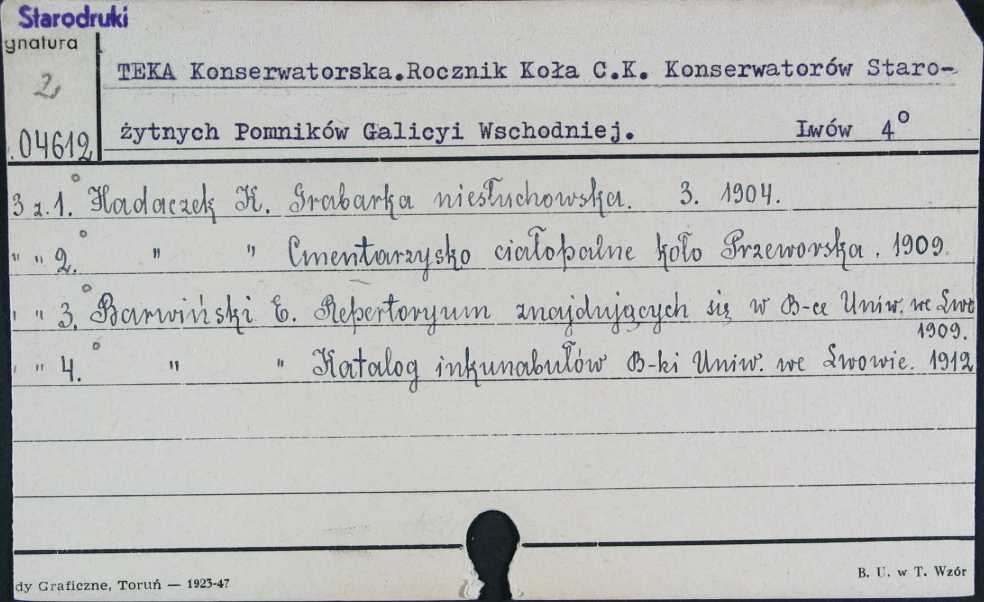 Starodruki
ygnatura
2
04612
TEKA Konserwatorska.Rocznik Koła C.K. Konserwatorów Staro-
żytnych Pomników Galicyi Wschodniej. Lwów 4°
3 z. 1.° Hadaczek K. Grabarka niesłuchowska. 3. 1904.
" " 2.° " " Cmentarzysko ciałopalne koło Przeworska. 1909.
" " 3.° Barwiński E. Repertoryum znajdujących się w B-ce Uniw. we Lwo
1909.
" " 4.° " " Katalog inkunabułów B-ki Uniw. we Lwowie. 1912
dy Graficzne, Toruń — 1923-47
B. U. w T. Wzór